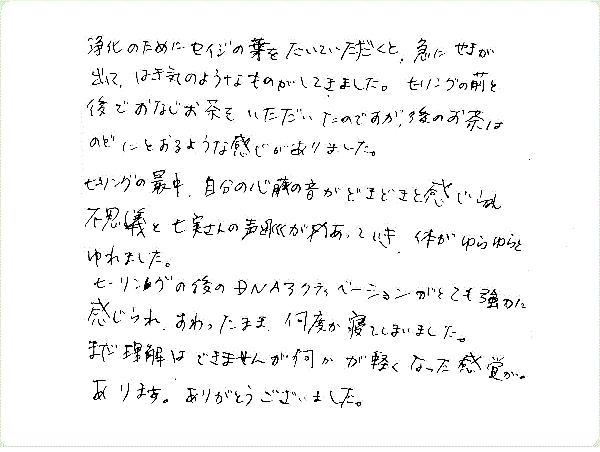 浄化のためにセイジの葉をたいていただくと、急にせきが
出て、はき気のようなものがしてきました。ヒーリングの前と
後でおなじお茶をいただいたのですが、後のお茶は
のどにとおるような感じがありました。
ヒーリングの最中、自分の心臓の音がどきどきと感じられ
不思議と七実さんの声が あっていき、体がゆらゆらと
ゆれました。
ヒーリングの後のDNAアクティベーションがとても強力に
感じられ、すわったまま、何度か寝てしまいました。
まだ理解はできませんが何かが軽くなった感覚が。
あります。ありがとうございました。